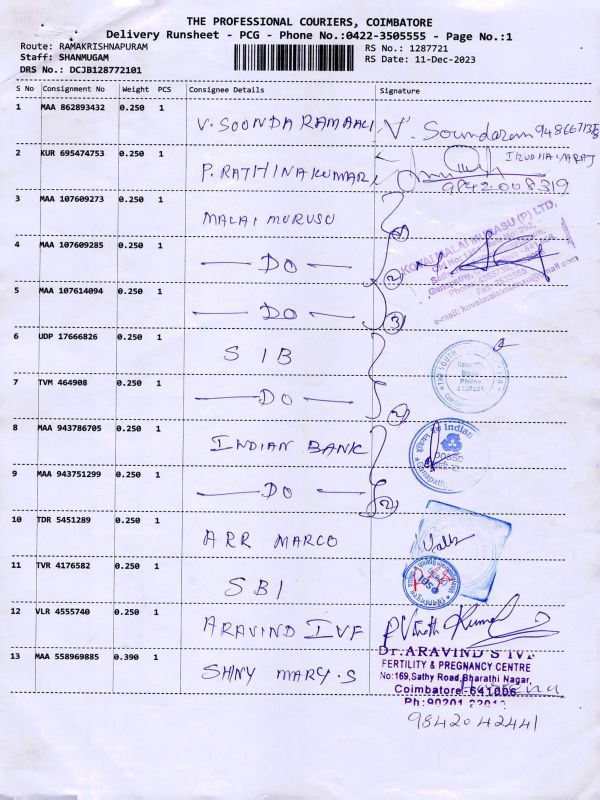 THE PROFESSIONAL COURIERS, COIMBATORE
Delivery Runsheet - PCG - Phone No.:0422-3505555 - Page No.:1
Route: RAMAKRISHNAPURAM
RS No.: 1287721
Staff: SHANMUGAM
RS Date: 11-Dec-2023
DRS No.: DCJB128772101
S No Consignment No Weight PCS Consignee Details Signature
1 MAA 862893432 0.250 1 V. SOONDARAMAALI V. Soundaram
2 KUR 695474753 0.250 1 P. RATHINAKUMAR
9842008319
3 MAA 107609273 0.250 1 MALAI MURUSU
4 MAA 107609285 0.250 1 — DO —
5 MAA 107614094 0.250 1 — DO — 3
KOVAI MALAI MURASU (P) LTD,
6 UDP 17666826 0.250 1 SIB
7 TVM 464908 0.250 1 — DO — 2
8 MAA 943786705 0.250 1 INDIAN BANK
Indian
9 MAA 943751299 0.250 1 — DO — 2
10 TDR 5451289 0.250 1 ARR MARCO
11 TVR 4176582 0.250 1 SBI
12 VLR 4555740 0.250 1 ARAVIND IVF
13 MAA 558969885 0.390 1 SHINY MARY.S
Dr.ARAVIND'S IVF
FERTILITY & PREGNANCY CENTRE
No:169,Sathy Road,Bharathi Nagar,
Coimbatore-641006
Ph:90201
9842042441